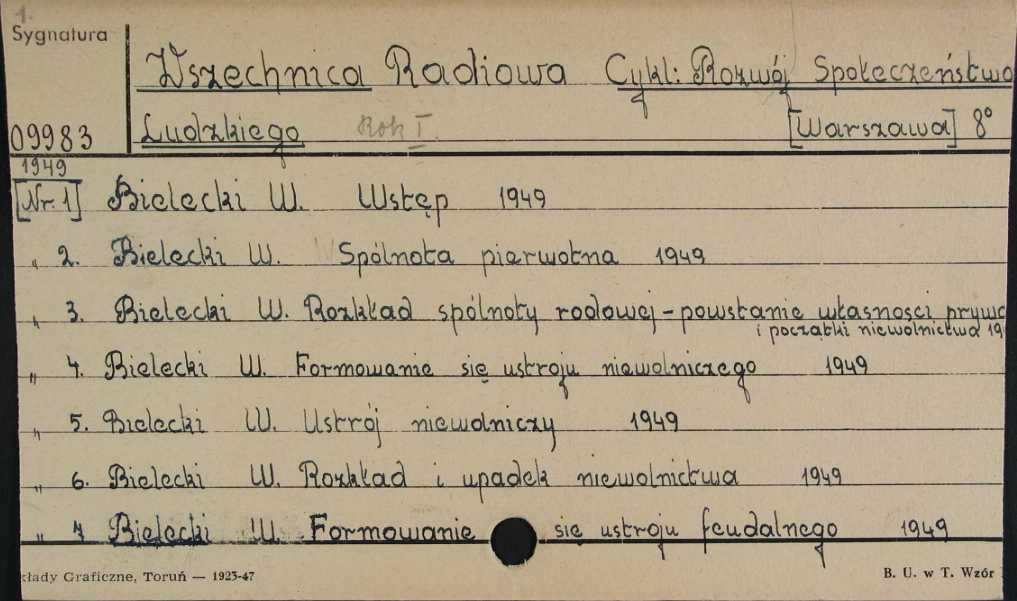 1.
Sygnatura
Wszechnica Radiowa Cykl: Rozwój Społeczeństwa
09983 Ludzkiego Rok I. [Warszawa] 8°
1949
[Nr. 1] Bielecki W. Wstęp 1949
„ 2. Bielecki W. Spólnota pierwotna 1949
„ 3. Bielecki W. Rozkład spólnoty rodowej – powstanie własności prywa
i początki niewolnictwa 19
„ 4. Bielecki W. Formowanie się ustroju niewolniczego 1949
„ 5. Bielecki W. Ustrój niewolniczy 1949
„ 6. Bielecki W. Rozkład i upadek niewolnictwa 1949
„ 7 Bielecki W. Formowanie się ustroju feudalnego 1949
kłady Graficzne, Toruń — 1923-47 B. U. w T. Wzór